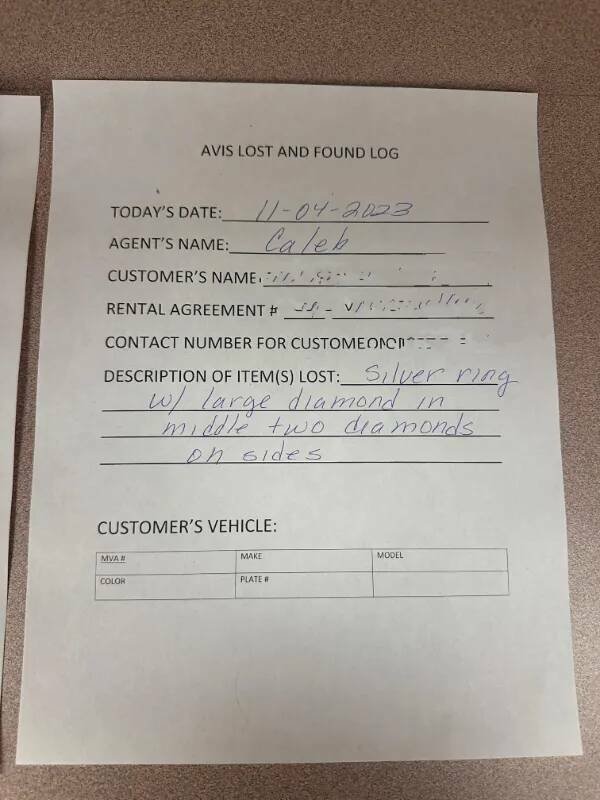 AVIS LOST AND FOUND LOG
TODAY'S DATE: 11-04-2023
AGENT'S NAME: Caleb
CUSTOMER'S NAME
RENTAL AGREEMENT #
CONTACT NUMBER FOR
DESCRIPTION OF ITEM(S) LOST: Silver ring
w/ large diamond in
middle two diamonds
on sides
CUSTOMER'S VEHICLE:
MVA # MAKE MODEL
COLOR PLATE #